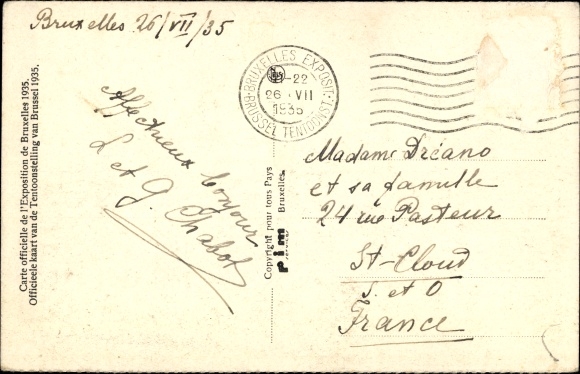 Bruxelles 26/VII/35
Carte officielle de l'Exposition de Bruxelles 1935.
Officieele kaart van de Tentoonstelling van Brussel 1935.
Affectueux bonjour
L et G. Chabot
BRUXELLES EXPOSIT.
-22
26 · VII
1935
BRUSSEL TENTOONST.
Copyright pour tous Pays
pim
Bruxelles.
Madame Dréano
et sa famille
24 rue Pasteur
St-Cloud
S. et O
France